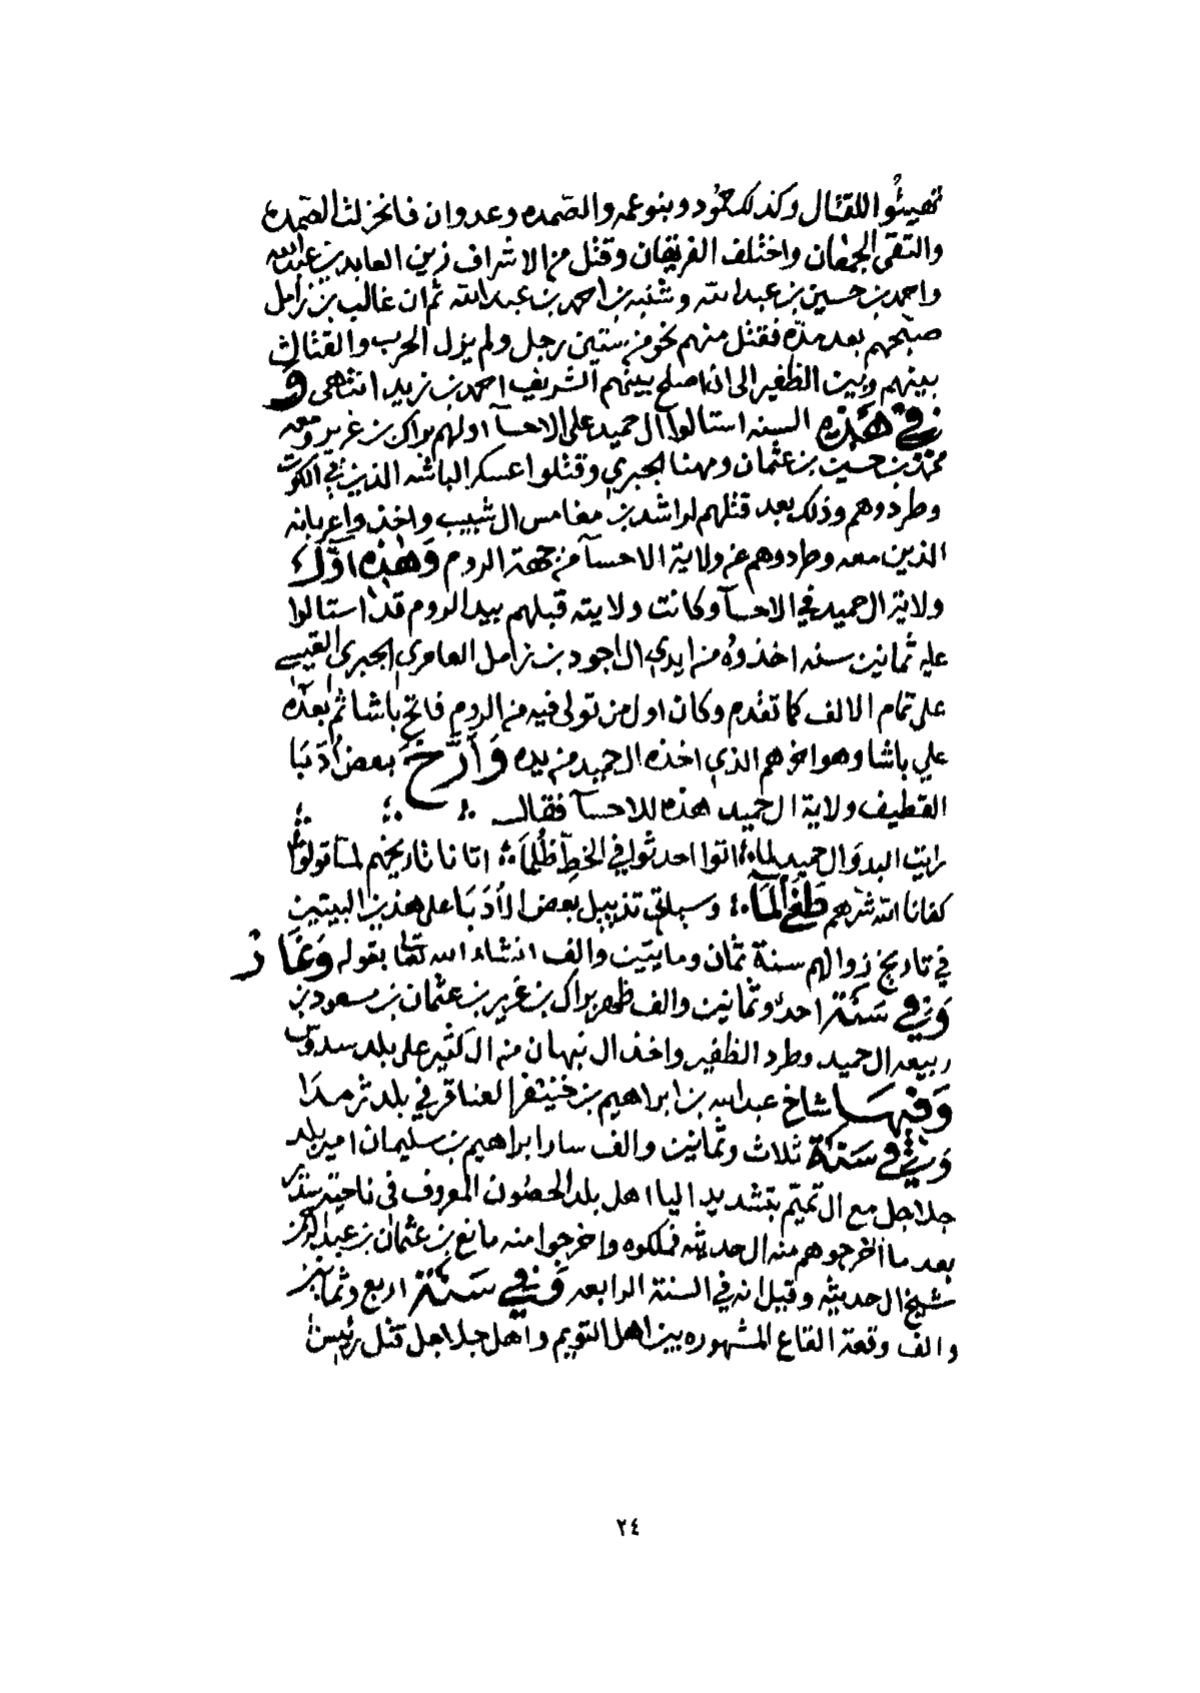 تهيئوا للقتال وكذلك حمود وبنو عمه والصمده وعدوان فانخزلت الصمده
والتقى الجمعان واختلف الفريقان وقتل من الاشراف زين العابدين بن عبدالله
واحمد بن حسين بن عبدالله وشنبر بن احمد بن عبدالله ثم ان غالب بن زامل
صبحهم بعد مده فقتل منهم نحو من ستين رجل ولم يزل الحرب والقتال
بينهم وبين الظفير الى ان اصلح بينهم الشريف احمد بن زيد انتهى و
في هذه السنه استالوا ال حميد على الاحسآ اولهم براك بن غرير ومعه
محمد بن حسين بن عثمان ومهنا الجبري وقتلوا عسكر الباشه الذين في الكوت
وطردوهم وذلك بعد قتلهم لراشد بن مغامس ال شبيب واخذوا عربانه
الذين معه وطردوهم عن ولاية الاحسآ من جهة الروم وهذه اول
ولاية ال حميد في الاحسآ وكانت ولايته قبلهم بيد الروم قد استالوا
عليه ثمانين سنه اخذوه من ايدي ال اجود بن زامل العامري الجبري القيسي
على تمام الالف كما تقدم وكان اول من تولى فيه من الروم فاتح باشا ثم بعده
علي باشا وهو اخرهم الذي اخذه ال حميد من يده وَأَرَّخَ بعض أدَبَا
القطيف ولاية ال حميد هذه للاحسآ فقال
رايت البدو ال حميد لما ؛ اتوا احدثوا في الخطِّ ظُلماً ؛ اتانا تاريخهم لمّا تولوا
كفانا الله شرهم طغى المآ ؛ وسياتي تذييل بعض الأدَبَا على هذين البيتين
في تاريخ زوالهم سنة ثمان ومايتين والف ان شاء الله تعالى بقوله وَغَارْ
وَفي سَنَة احد وثمانين والف ظهر براك بن غرير بن عثمان بن مسعود بن
ربيعه ال حميد وطرد الظفير واخذ ال نبهان من ال كثير على بلد سدوس
وَفيهَا شاخ عبدالله بن ابراهيم بن خنيفر العناقر في بلد ثرمدَا
وَفي سَنَة ثلاث وثمانين والف سار ابراهيم بن سليمان امير بلد
جلاجل مع ال تميّم بتشديد اليا اهل بلد الحصون المعروف في ناحية سدير
بعد ما اخرجوهم منه ال حديثه فملكوه واخرجوا منه مانع بن عثمان بن عبدالرحمن
شيخ ال حديثه وقيل انه في السنة الرابعه وَفي سَنَة اربع وثمانين
والف وقعة القاع المشهوره بين اهل التويم واهل جلاجل قتل رئيس
٢٤